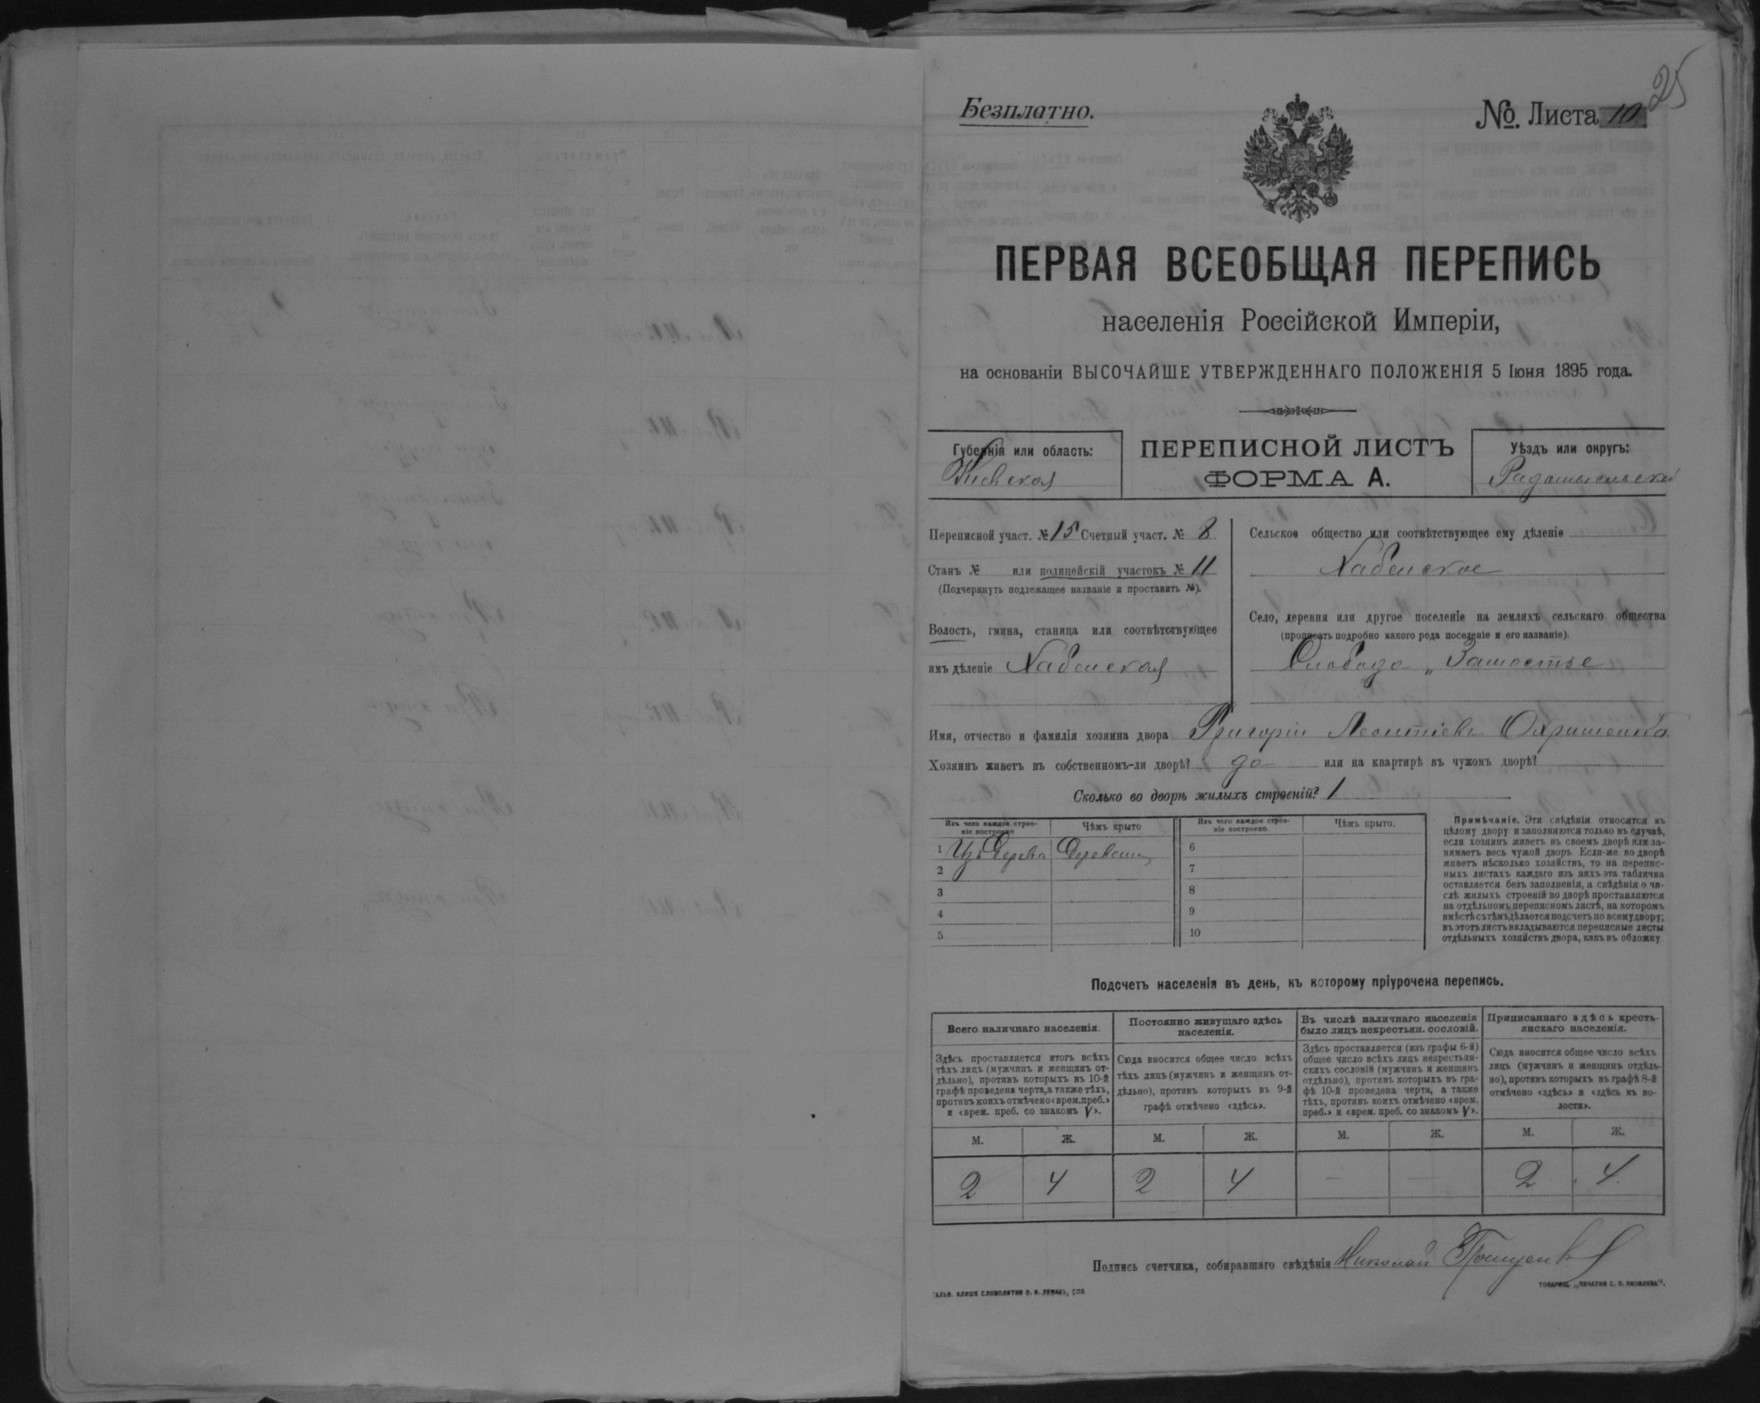 25
Безплатно.
№. Листа 10
ПЕРВАЯ ВСЕОБЩАЯ ПЕРЕПИСЬ
населенія Россійской Имперіи,
на основаніи ВЫСОЧАЙШЕ УТВЕРЖДЕННАГО ПОЛОЖЕНІЯ 5 Іюня 1895 года.
Губернія или область:
Кіевская
ПЕРЕПИСНОЙ ЛИСТЪ
ФОРМА А.
Уѣздъ или округъ:
Радомысльскій
Переписной участ. № 15 Счетный участ. № 8
Станъ № или полицейскій участокъ № 11
(Подчеркнуть подлежащее названіе и проставить №).
Волость, гмина, станица или соотвѣтствующее
имъ дѣленіе Хабенская
Сельское общество или соотвѣтствующее ему дѣленіе
Хабенское
Село, деревня или другое поселеніе на земляхъ сельскаго общества
(прописать подробно какого рода поселеніе и его названіе).
Слобода „Замостье
Имя, отчество и фамилія хозяина двора Григорій Леонтіевъ
Хозяинъ живетъ въ собственномъ-ли дворѣ? да или на квартирѣ въ чужомъ дворѣ?
Сколько во дворѣ жилыхъ строеній? 1
Изъ чего каждое строеніе построено
Чѣмъ крыто
Изъ чего каждое строеніе построено.
Чѣмъ крыто.
1 Изъ Дерева
2
3
4
5
6
7
8
9
10
Примѣчаніе. Эти свѣдѣнія относятся къ
цѣлому двору и заполняются только въ случаѣ,
если хозяинъ живетъ въ своемъ дворѣ или за-
нимаетъ весь чужой дворъ. Если-же во дворѣ
живетъ нѣсколько хозяйствъ, то на перепис-
ныхъ листахъ каждаго изъ нихъ эта табличка
оставляется безъ заполненія, а свѣдѣнія о чи-
слѣ жилыхъ строеній во дворѣ проставляются
на отдѣльномъ переписномъ листѣ, на которомъ
вмѣстѣ съ тѣмъ дѣлается подсчетъ по всему двору;
въ этотъ листъ вкладываются переписные листы
отдѣльныхъ хозяйствъ двора, какъ въ обложку.
Подсчетъ населенія въ день, къ которому пріурочена перепись.
Всего наличнаго населенія.
Здѣсь проставляется итогъ всѣхъ
тѣхъ лицъ (мужчинъ и женщинъ от-
дѣльно), противъ которыхъ въ 10-й
графѣ проведена черта, а также тѣхъ,
противъ коихъ отмѣчено «врем. преб.»
и «врем. преб. со знакомъ V».
Постоянно живущаго здѣсь
населенія.
Сюда вносится общее число всѣхъ
тѣхъ лицъ (мужчинъ и женщинъ от-
дѣльно), противъ которыхъ въ 9-й
графѣ отмѣчено «здѣсь».
Въ числѣ наличнаго населенія
было лицъ некрестьян. сословій.
Здѣсь проставляется (изъ графы 6-й)
общее число всѣхъ лицъ некрестьян-
скихъ сословій (мужчинъ и женщинъ
отдѣльно), противъ которыхъ въ гра-
фѣ 10-й проведена черта, а также
тѣхъ, противъ коихъ отмѣчено «врем.
преб.» и «врем. преб. со знакомъ V».
Приписаннаго здѣсь кресть-
янскаго населенія.
Сюда вносится общее число всѣхъ
лицъ (мужчинъ и женщинъ отдѣль-
но), противъ которыхъ въ графѣ 8-й
отмѣчено «здѣсь» и «здѣсь къ во-
лости».
М. Ж. М. Ж. М. Ж. М. Ж.
2 4 2 4 — — 2 4
Подпись счетчика, собиравшаго свѣдѣнія Николай
ТОВАРИЩ. „ПЕЧАТНЯ С. П. ЯКОВЛЕВА".